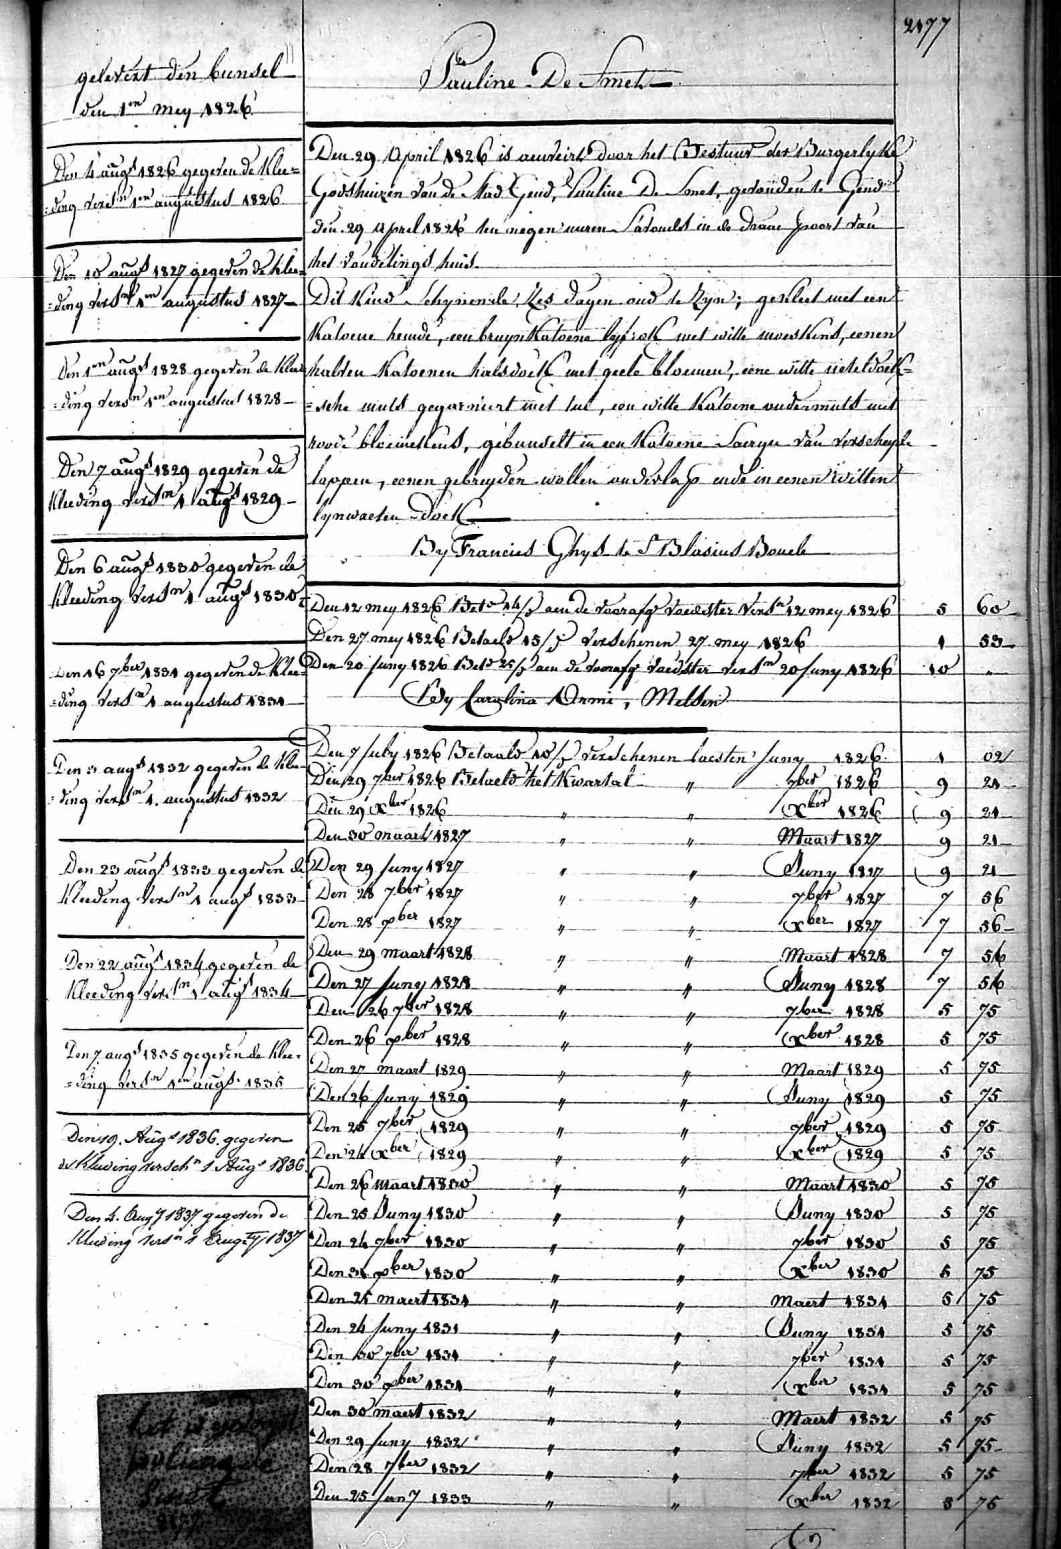 2177
gelevert den bunsel
den 1en mey 1826
Den 4 augs 1826 gegeven de Klee=
=ding versn 1en augustus 1826
Den 10 augs 1827 gegeven de klee=
=ding versn 1en augustus 1827
Den 1en augs 1828 gegeven de klee
=ding versn 1en augustus 1828
Den 7 augs 1829 gegeven de
kleeding versn 1 augs 1829
Den 6 augs 1830 gegeven de
kleeding versn 1 augs 1830
Den 16 7ber 1831 gegeven de Klee=
=ding versn 1 augustus 1831
Den 3 augs 1832 gegeven de kle
=ding versn 1. augustus 1832
Den 23 augs 1833 gegeven de
kleeding versn 1 augs 1833
Den 22 augs 1834 gegeven de
kleeding versn 1 augs 1834
Den 7 augs 1835 gegeven de klee=
=ding versn 1en augs. 1835
Den 19. Augs 1836. gegeven
de Kleeding versch n 1 Augs 1836
Den 4. Aug 1837 gegeven de
Kleeding versn 1 Aug 1837
het is
Pauline De Smet
Den 29 April 1826 is aenveirt door het Bestuur der Burgerlyke
Godshuizen van de stad Gend, Pauline De Smet, gevonden te Gend
den 29 april 1826 ten negen uuren s'avonds in de draai poort van
het vondelings huis.
Dit kind schynende zes dagen oud te zyn; gekleet met een
katoene hemde, een bruyn katoene lyfrok met witte moeskens, eenen
halven katoenen halsdoek met geele bloemen, eene witte neteldoek=
=sche muts gegarniert met tul, een witte katoene ondermuts met
roode bloemekens, gebunselt in een katoene saergie van verscheyde
lappen, eenen gebreyden wollen onderlap ende in eenen witten
lynwaeten doek
By Francies Ghys te St Blasius Boucle
Den 12 mey 1826 Betd 14/5 aen de voorafg voedster versn 12 mey 1826 5 60
Den 27 mey 1826 Betaeld 15/5 verschenen 27 mey 1826 1 53
Den 20 Juny 1826 Betd 25/5 aen de voorafg voedster versn 20 Juny 1826 10 "
By Carolina Onmi, Melsen
Den 7 July 1826 Betaald 10/5 verschenen laesten Juny 1826 1 02
Den 29 7ber 1826 Betaeld het Kwartal " 7ber 1826 9 21
Den 29 Xber 1826 " " Xber 1826 9 21
Den 30 maart 1827 Maart 1827 9 21
Den 29 Juny 1827 " " Juny 1827 9 21
Den 28 7ber 1827 " " 7ber 1827 7 56
Den 28 Xber 1827 " " Xber 1827 7 56
Den 29 maart 1828 " " Maart 1828 7 56
Den 27 Juny 1828 " " Juny 1828 7 56
Den 26 7ber 1828 " " 7ber 1828 5 75
Den 26 Xber 1828 " " Xber 1828 5 75
Den 27 maart 1829 " " Maart 1829 5 75
Den 26 Juny 1829 " " Juny 1829 5 75
Den 25 7ber 1829 " " 7ber 1829 5 75
Den 24 Xber 1829 " " Xber 1829 5 75
Den 26 Maart 1830 " " Maart 1830 5 75
Den 25 Juny 1830 " " Juny 1830 5 75
Den 24 7ber 1830 " " 7ber 1830 5 75
Den 31 Xber 1830 " " Xber 1830 5 75
Den 25 maert 1831 " " Maert 1831 5 75
Den 24 Juny 1831 " " Juny 1831 5 75
Den 30 7ber 1831 " " 7ber 1831 5 75
Den 30 Xber 1831 " " Xber 1831 5 75
Den 30 maert 1832 " " Maert 1832 5 75
Den 29 Juny 1832 " " Juny 1832 5 75
Den 28 7ber 1832 " " 7ber 1832 5 75
Den 25 Jany 1833 " " Xber 1832 5 75